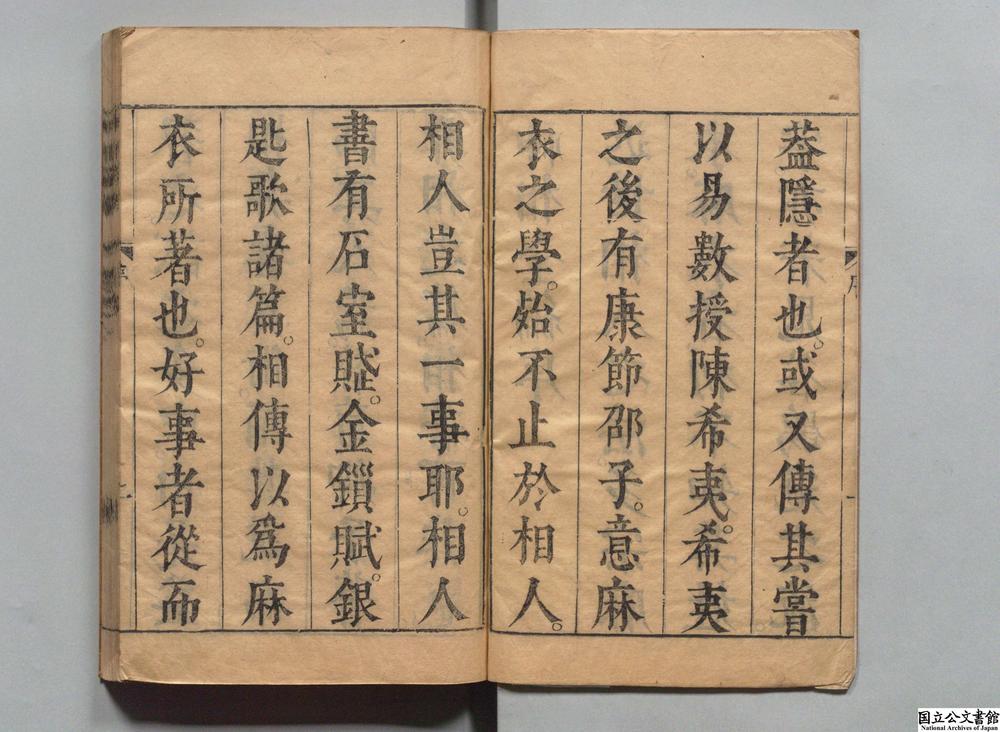 葢隱者也。或又傳其嘗
以易數授陳希夷。希夷
之後有康節邵子。意麻
衣之學。始不止於相人。
相人豈其一事耶。相人
書有石室賦。金鎻賦。銀
匙歌諸篇。相傳以爲麻
衣所著也。好事者從而
国立公文書館
National Archives of Japan